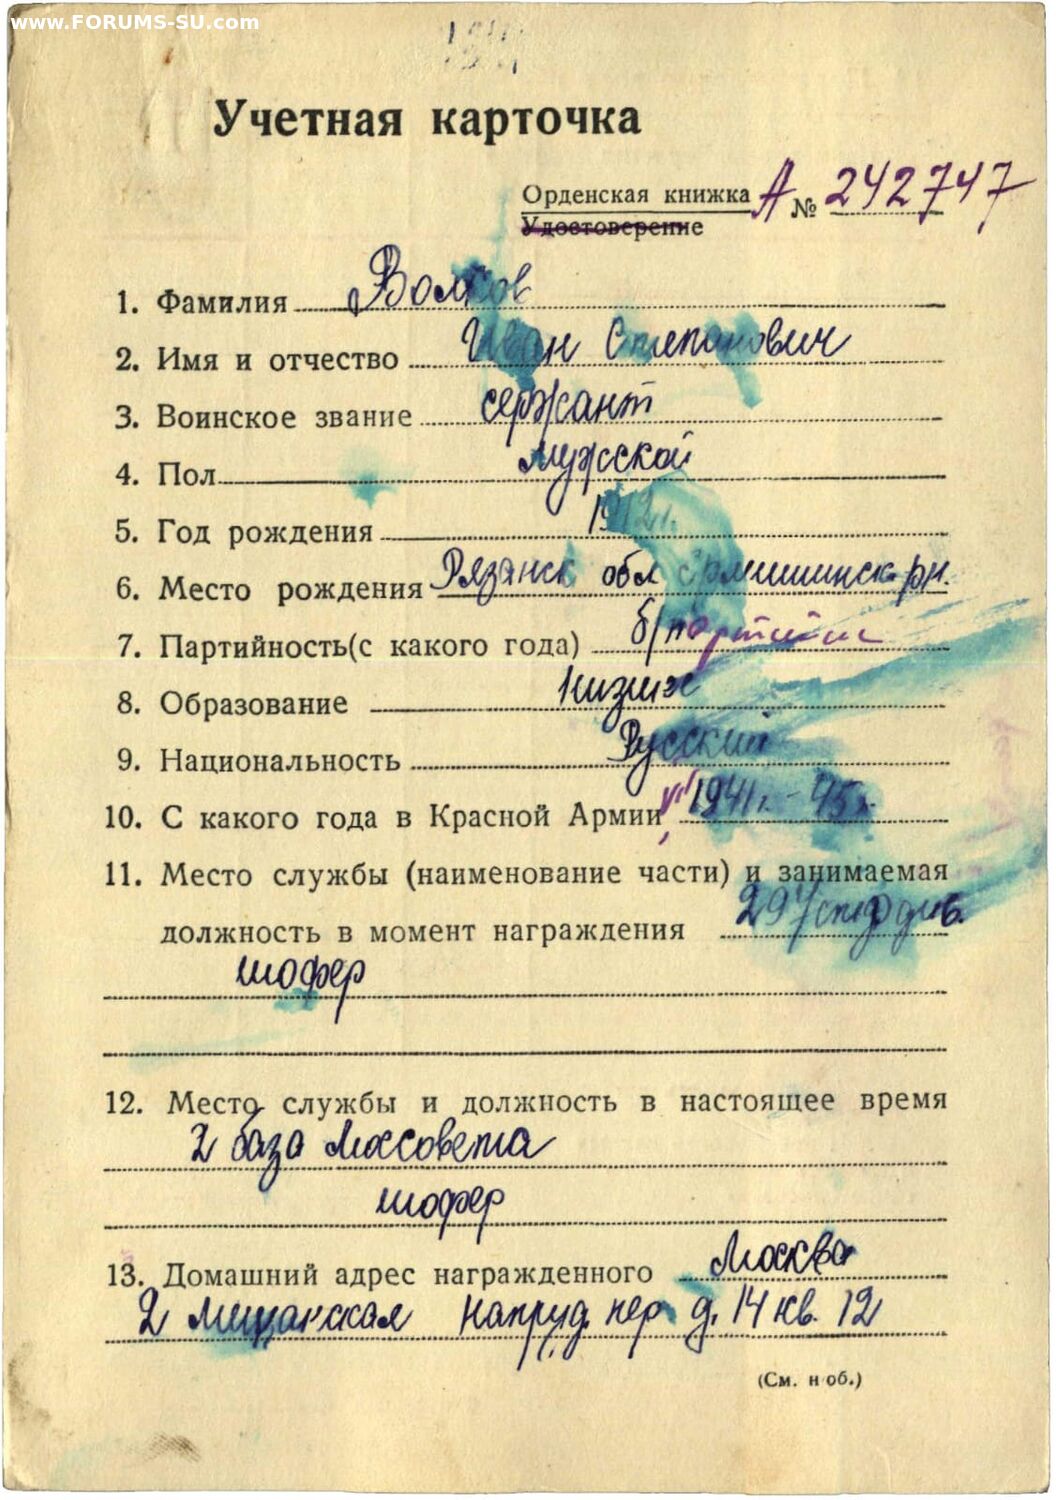 www.FORUMS-SU.com
Учетная карточка
Орденская книжка А № 242747
Удостоверение
1. Фамилия Волков
2. Имя и отчество Иван Степанович
3. Воинское звание сержант
4. Пол мужской
5. Год рождения 1912г.
6. Место рождения Рязанск обл Ермишинск. рн.
7. Партийность(с какого года) б/партийн
8. Образование низшее
9. Национальность Русский
10. С какого года в Красной Армии 1941г. - 45г.
11. Место службы (наименование части) и занимаемая
должность в момент награждения 297 див.
шофер
12. Место службы и должность в настоящее время
2 база Моссовета
шофер
13. Домашний адрес награжденного Москва
2 Мещанская Напруд. пер д. 14 кв. 12
(См. н об.)